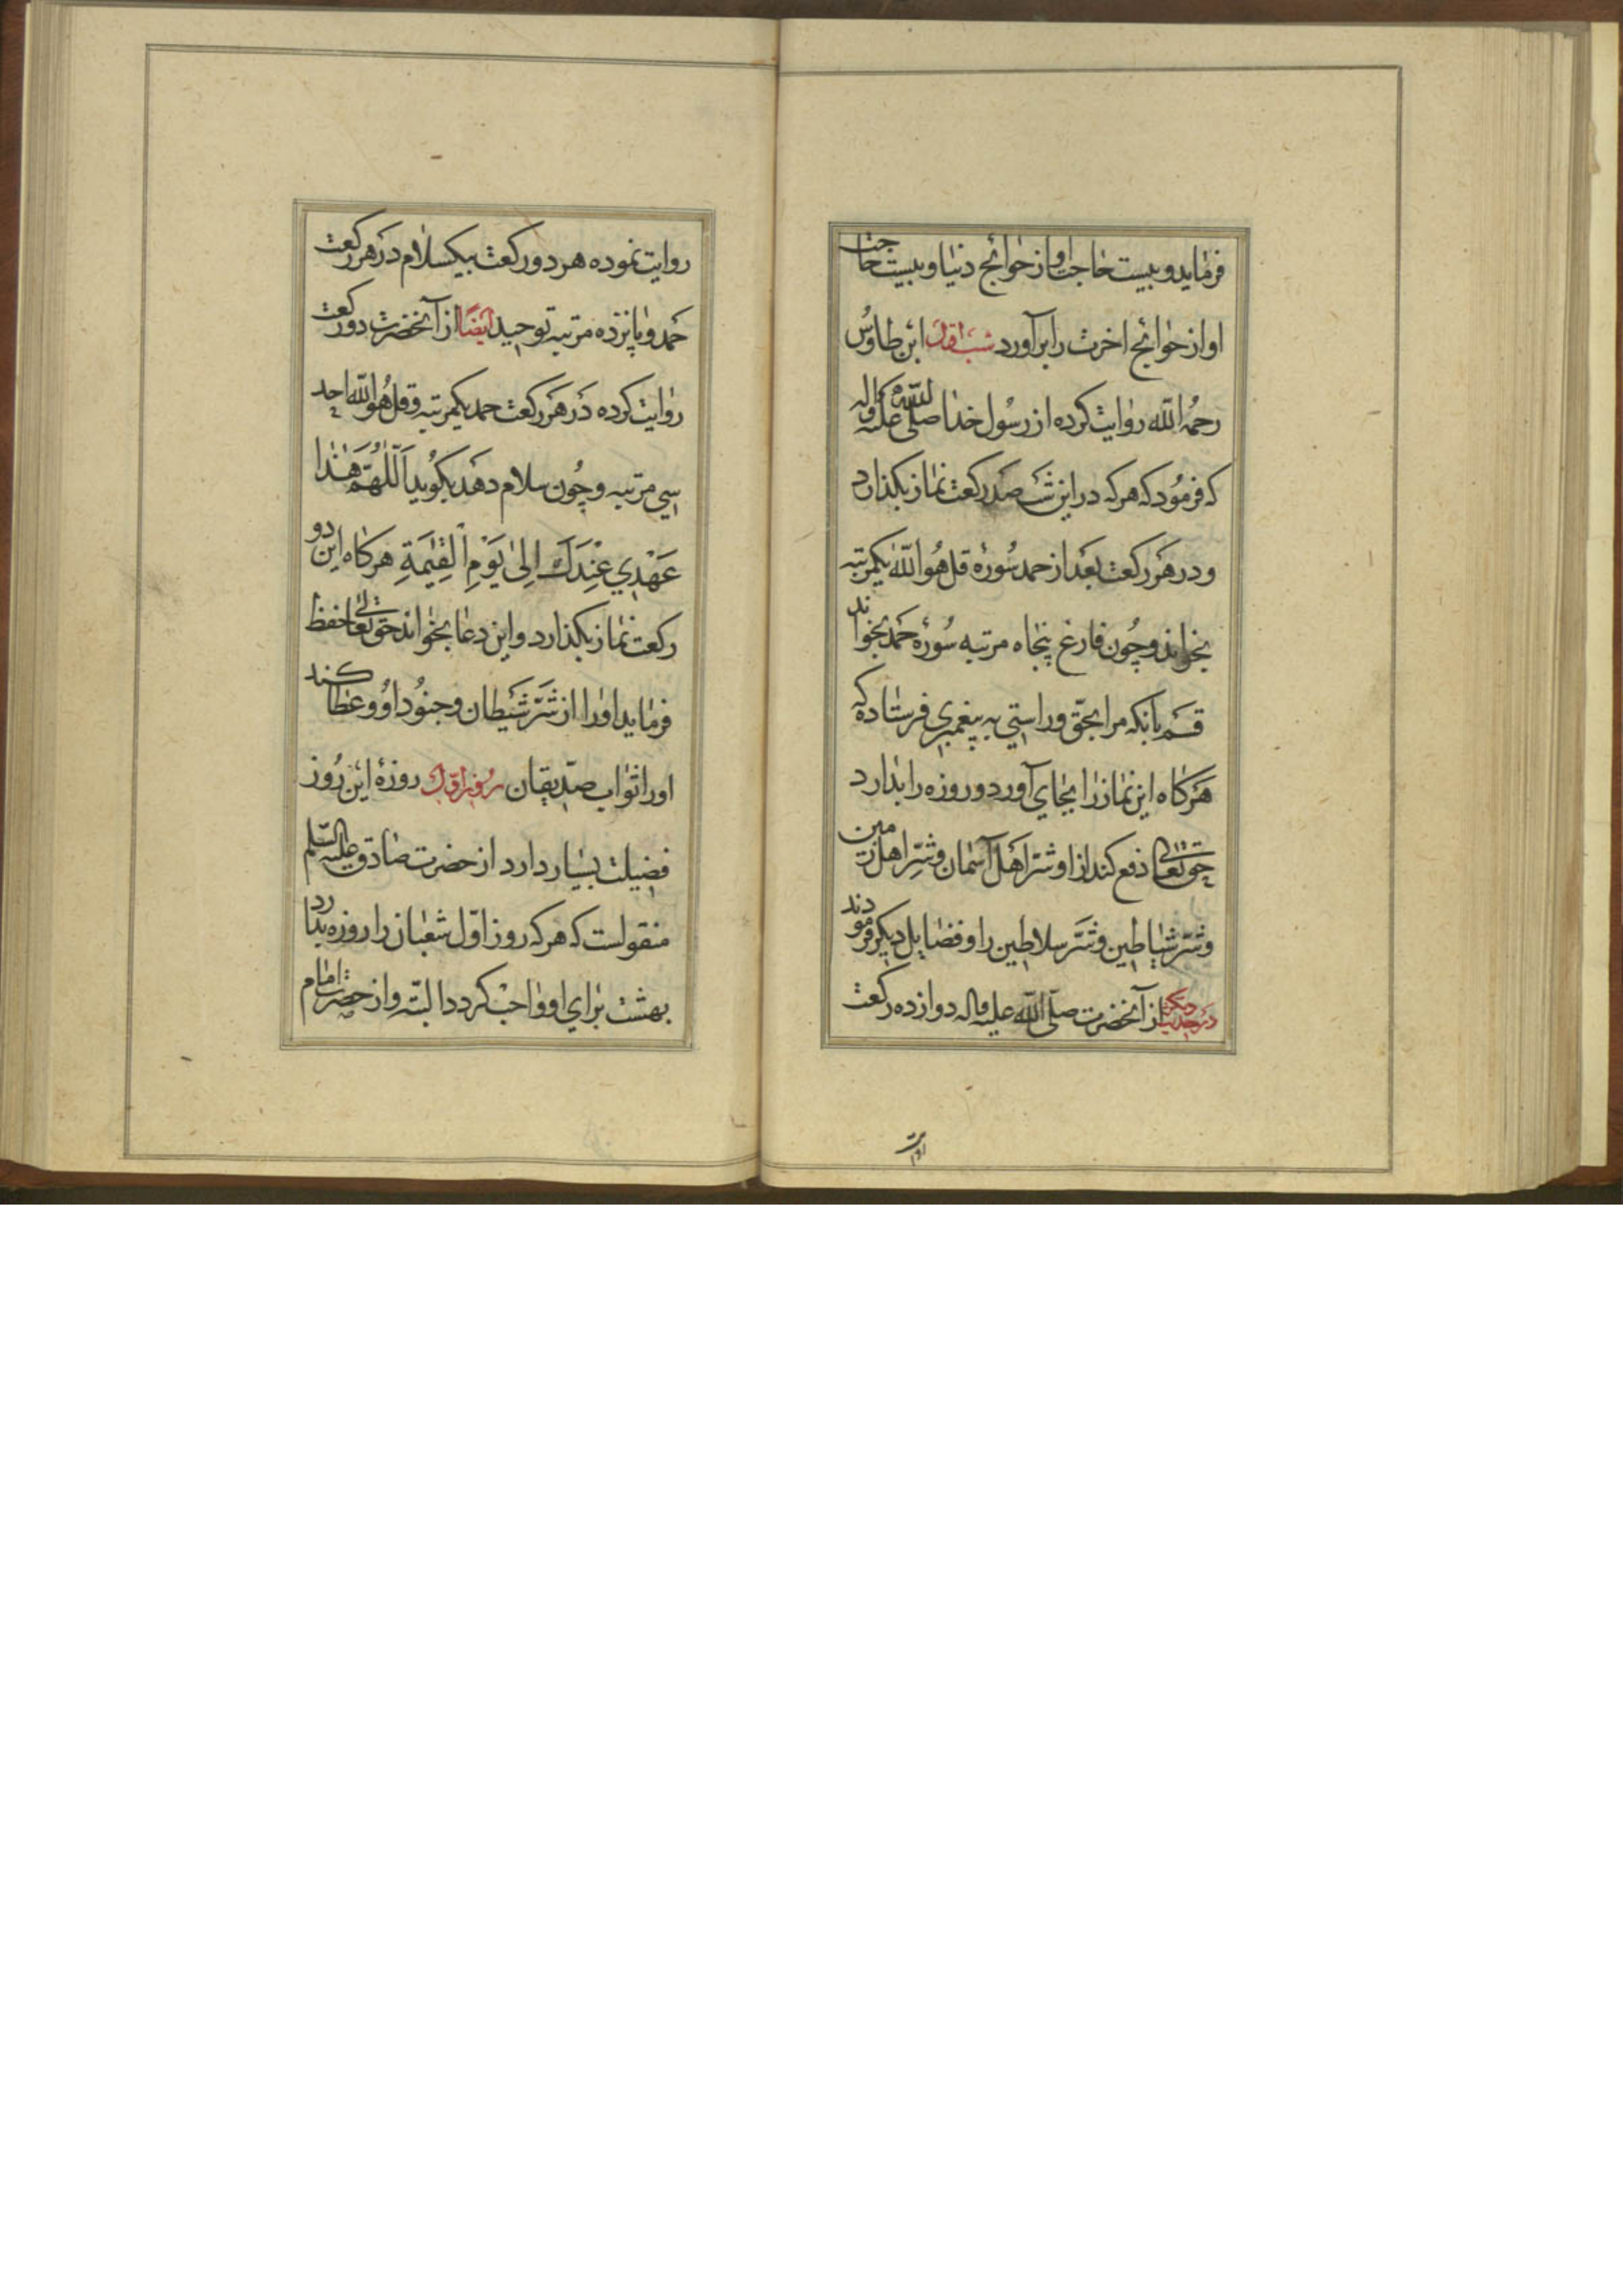 فرماید و بیست حاجت او از حوائج دنیا و بیست حاجت
او از حوائج اخرت را برآورد شب اول ابن طاوُس
رحمه الله روایت کرده از رسُول خدا صلی الله علیه و اله
که فرمُود که هر که در این شب صد رکعت نماز بکذارد
و در هر رکعت بعد از حمد سُورهٔ قل هُو الله یکمرتبه
بخواند و چُون فارغ پنجاه مرتبه سُورهٔ حمد بخواند
قسم بآنکه مرا بحقّ و راستي به پیغمبري فرستاده که
هرکاه این نماز را بجاي آورد و روزه را بدارد
حق تعالی دفع کند از او شرّ اهل آسمان و شرّ اهل زمین
و شرّ شیاطین و شرّ سلاطین را و فضایل دیکر فرمودند
در حدیث دیکر از آنحضرت صلّی الله علیه و اله دوازده رکعت
روایت
روایت نموده هر دو رکعت بیکسلام در هر رکعت
حمد و پانزده مرتبه توحید ایضًا از آنحضرت دو رکعت
روایت کرده در هر رکعت حمد یکمرتبه و قل هُو الله احد
سي مرتبه و چُون سلام دهد بکوُید اَللّٰهُمَّ هٰذا
عَهْدِي عِنْدَكَ اِلیٰ یَوْمِ الْقِیٰمَةِ هرکاه این دو
رکعت نماز بکذارد و این دعا بخواند حق تعالی حفظ
فرماید او را از شرّ شیطان و جنُود او و عطا کند
او را ثواب صدّیقان روز اوّل روزهٔ این رُوز
فضیلت بسیار دارد از حضرت صادق علیه السّلم
منقولست که هر که روز اوّل شعبان را روزه بدارد
بهشت براي او واجب کردد البتّه و از حضرت امام